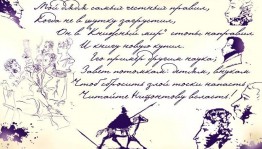 Мой дядя самых честных правил,
Когда не в шутку загрустил,
Он в "Книжный мир" стопы направил
И книгу новую купил.
Его пример другим наука;
Завет потомкам: детям, внукам
Чтоб сбросить злой тоски напасть
Читайте Нифонтову всласть!